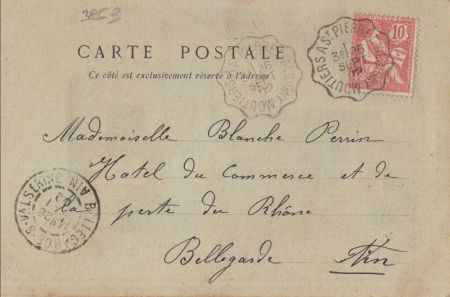 3853
CARTE POSTALE
Ce côté est exclusivement réservé à l'adresse
10
MOUTIERS A ST PIERRE
3E 25
SEPT
02
Mademoiselle Blanche Perrin
Hotel du Commerce et de
la perte du Rhône
Bellegarde Ain
BELLEGARDE-S-VALSERINE AIN